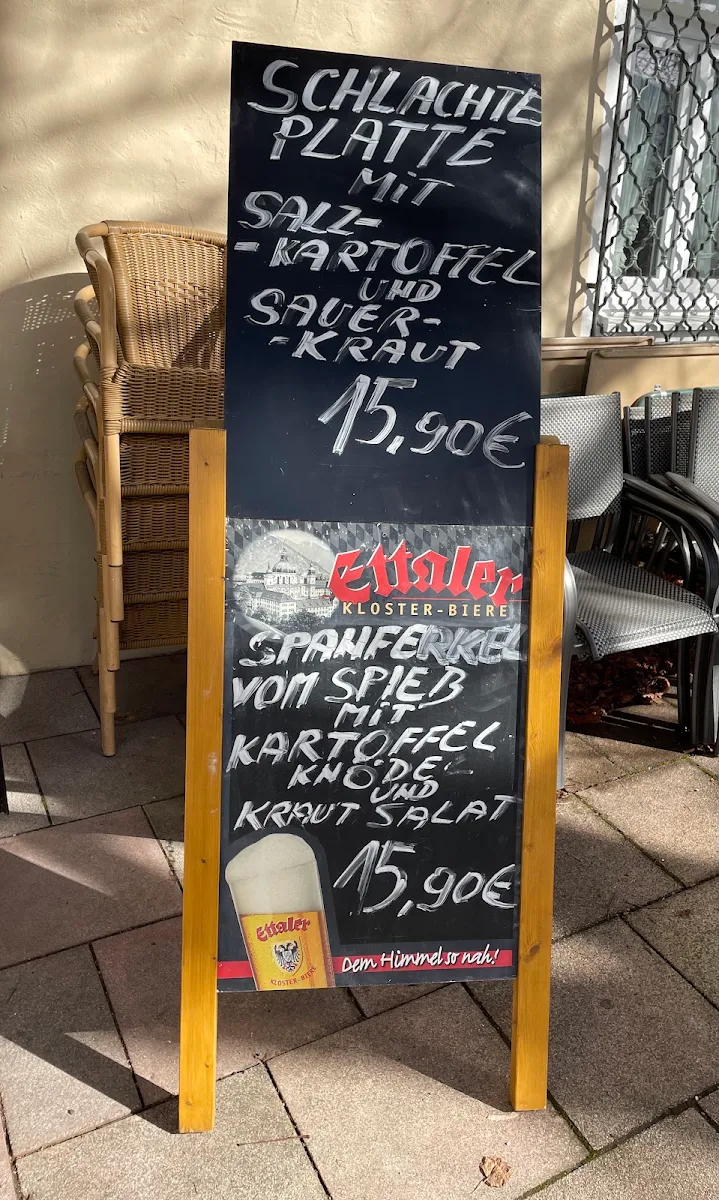 SCHLACHTE
PLATTE
MiT
SALZ-
-KARTOFFEL
UND
SAUER-
-KRAUT
15,90€
Ettaler
KLOSTER-BIERE
SPANFERKEL
VOM SPIEß
MiT
KARTOFFEL
KNÖDE-
UND
KRAUT SALAT
15,90€
Ettaler
KLOSTER-BIERE
Dem Himmel so nah!